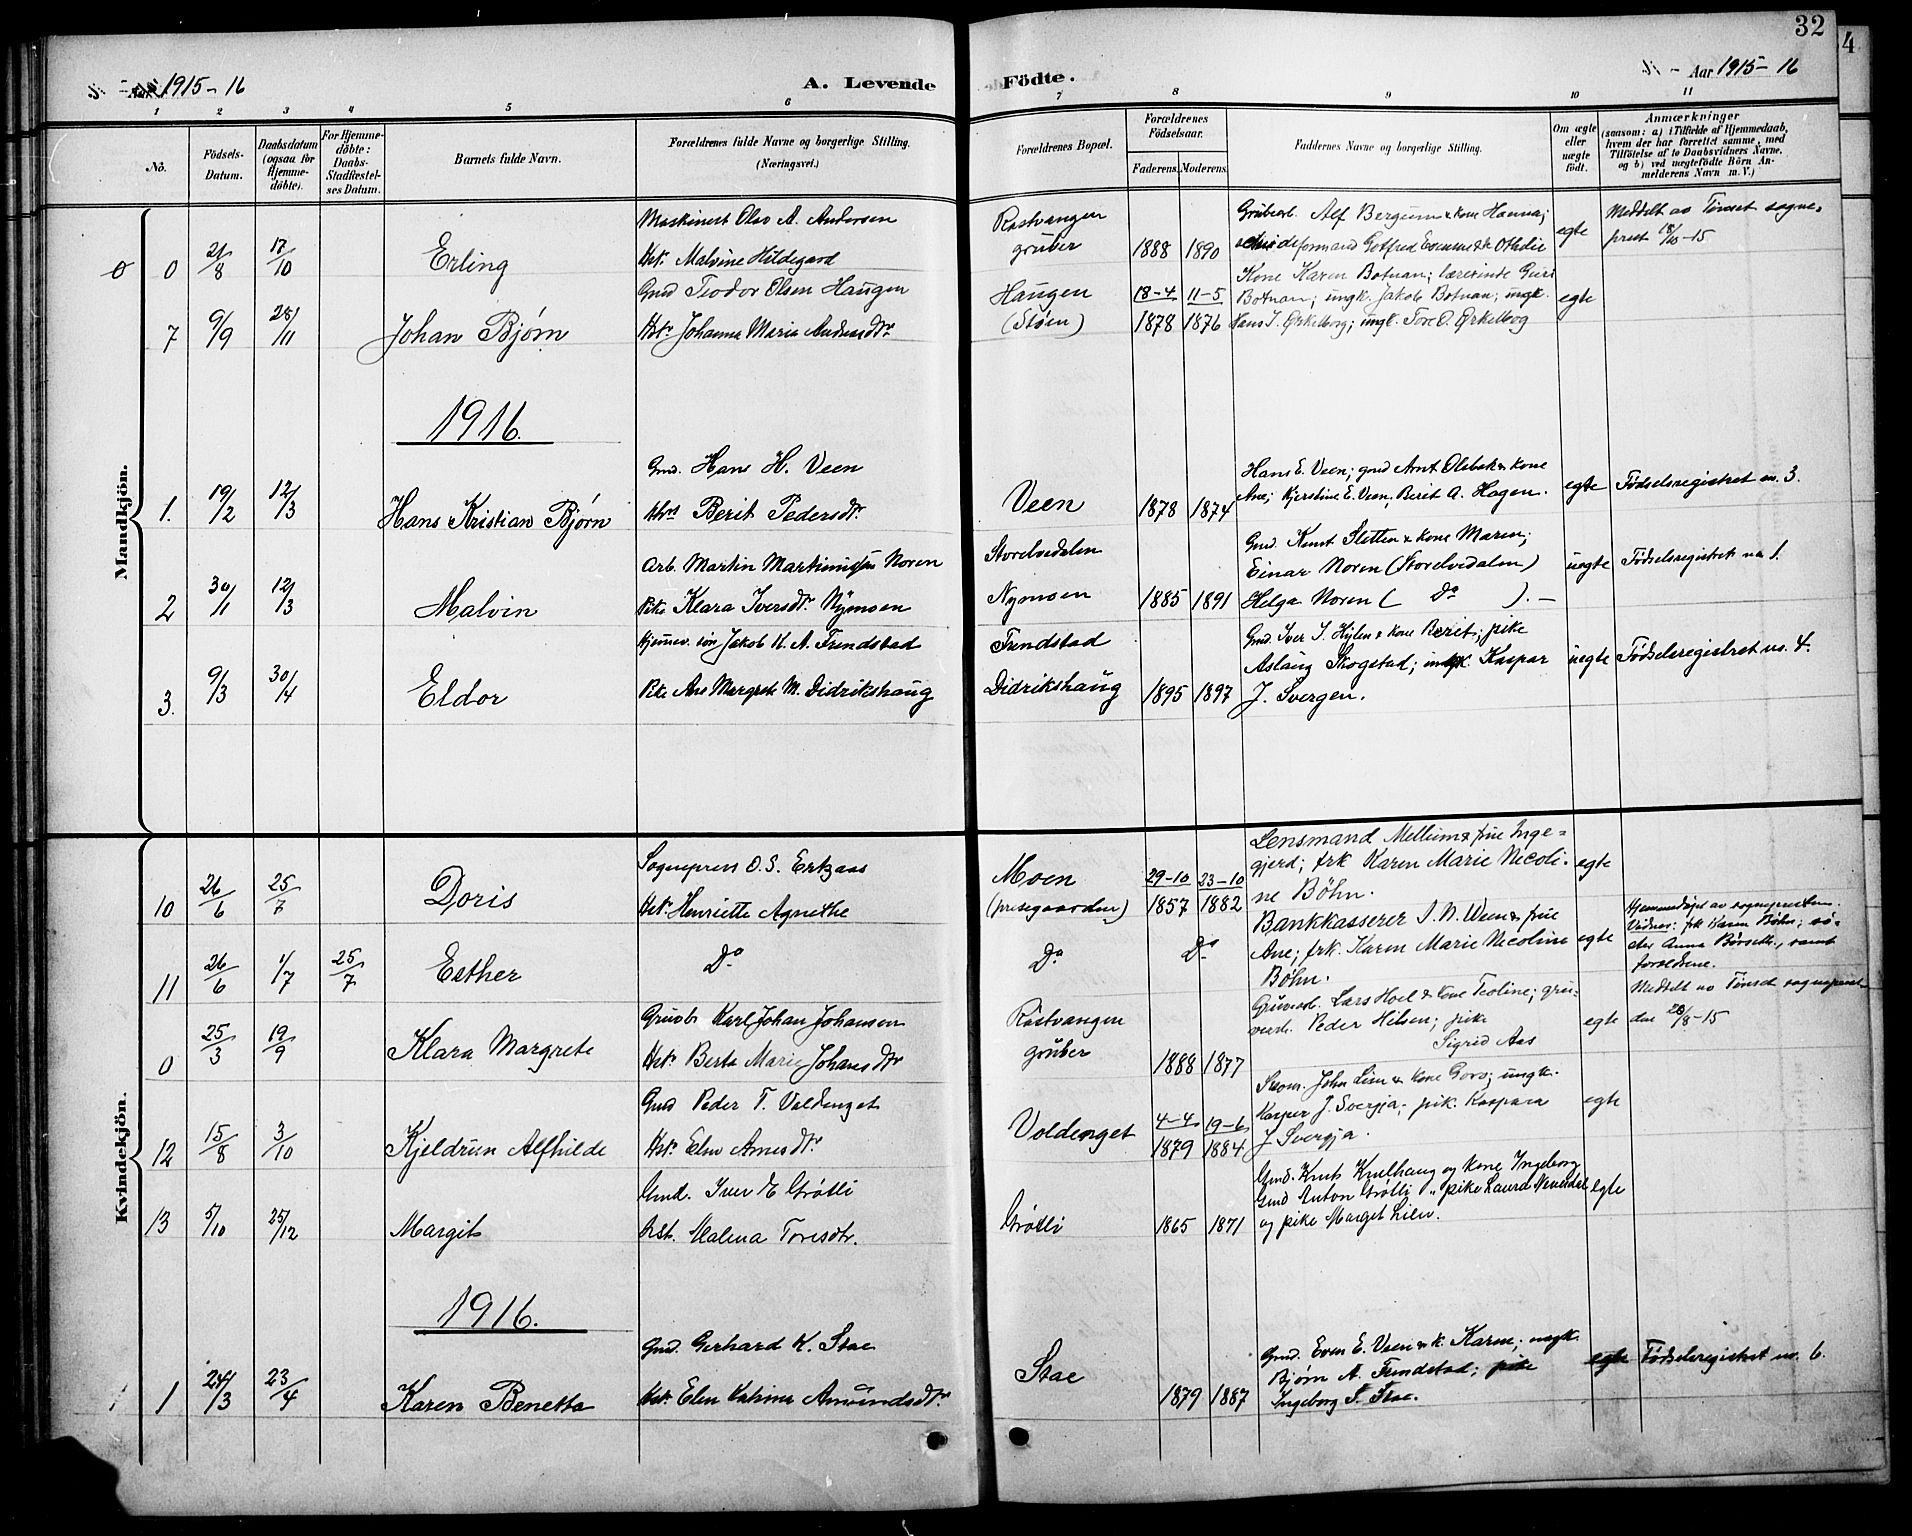 32
4
Aar 1915-16
A. Levende
Födte.
Aar 1915-16
1 2 3 4 5 6 7 8 9 10 11
No.
Födsels-
Datum.
Daabsdatum
(ogsaa for
Hjemme-
döbte).
For Hjemme-
döbte:
Daabs-
Stadfæstel-
ses Datum.
Barnets fulde Navn.
Forældrenes fulde Navne og borgerlige Stilling.
(Næringsvei.)
Forældrenes Bopæl.
Forældrenes
Födselsaar.
Faderens. Moderens.
Faddernes Navne og borgerlige Stilling.
Om ægte
eller
uægte
födt.
Anmærkninger
(saasom: a) i Tilfælde af Hjemmedaab,
hvem der har forrettet samme, med
Tilföielse af to Daabsvidners Navne.
og b) ved uægtefödte Börn An-
melderens Navn m. V.)
Mandkjön.
0 0 21/8 17/10 Erling
Maskinist Olav A. Andersen
Hst. Malvine Hildegard
Røstvangen
gruber
1888 1890
Grubearb. Alf Bergum & kone Hanna;
Gotfred & Othelie
egte
Meddelt av Tønset sogne-
prest 18/10-15
7 9/9 28/11 Johan Bjørn
Gmd Teodor Olsen Haugen
Hst. Johanna Maria Andersdtr
Haugen
(Støen)
18-4 11-5
1878 1876
Kone Karen Botnan; lærerinde Guri
Botnan; ungk. Jakob Botnan; ungk.
Hans I. Ørkelbog; ungk. Tore O. Ørkelbog
egte
1916.
1. 19/2 12/3 Hans Kristian Bjørn
Gmd. Hans H. Veen
Hst. Berit Pedersdtr
Veen
1878 1874
Hans E. Veen; gmd Arnt Olsbak & kone
Ane; Kjerstine E. Veen, Berit A. Hagen.
egte
Fødselsregistret nr. 3.
2 30/1 12/3 Malvin
Arb. Martin Martiniusen Noren
Pike Klara Iversdtr. Nymoen
Storelvedalen
Nymoen
1885 1891
Gmd. Knut Sletten & kone Maren;
Einar Noren (Storelvedalen)
Helga Noren ( Do ). —
uegte
Fødselsregistret nr 1.
3. 9/3 30/4 Eldor
Hjemmev. søn Jakob K. A. Trondstad
Pike Ane Margrete M. Didrikshaug
Trondstad
Didrikshaug
1895 1897
Gmd. Iver I. Kylen & kone Berit; pike
Aslaug Skogstad; ungk. Kaspar
J. Svergen.
uegte
Fødselsregistret nr. 4.
Kvindekjön.
10 26/6 25/7 Doris
Sogneprest O. S. Erkzaas
Hst. Henriette Agnethe
Moen
(prestegaarden)
29-10 23-10
1857 1882
Lensmand Mellum & frue Inge-
gjerd; frk Karen Marie Nicoli-
ne Bøhn.
egte
11 26/6 1/7 25/7 Esther
Do
Do
Do
Bankkasserer I. N. Ween & frue
Ane; frk. Karen Marie Nicoline
Bøhn.
egte
Hjemmedøpt av sognepresten.
Vidner: frk Karen Bøhn, sø-
ster Anna Børseth, samt
foreldrene.
0 25/3 19/9 Klara Margrete
Gruvb. Karl Johan Johansen
Hst. Berta Marie Johansdtr
Røstvangen
gruber
1888 1877
Gruvearb. Lars Hoel & kone Teoline; gru-
vearb. Peder Nilsen; pike
Sigrid Aas
egte
Meddelt av Tønset sogneprest
den 28/8-15
12 15/8 3/10 Kjeldrun Alfhilde
Gmd Peder T. Voldenget
Hst. Elen Arnesdtr
Voldenget
4-4 19-6
1879 1884
Svom. John Lien & kone Goro; ungk.
Kasper J. Svergja; pik. Kaspara
J Svergja.
egte
13 5/10 25/12 Margit
Gmd. Iver E Grøtli
Hst. Malena Toresdtr.
Grøtli
1865 1871
Gmd. Knut Knulhaug og kone Ingeborg
Gmd Anton Grøtli, pike Laura Neverdal
og pike Marget Lilen.
egte
1916.
1 24/3 23/4 Karen Benetta
Gmd. Gerhard K. Stae
Hst. Elen Katrina Amundsdtr.
Stae
1879 1887
Gmd. Even E. Veen & k. Karen; ungk.
Bjørn A. Trondstad; pike
Ingeborg T. Stae.
egte
Fødselsregistret nr. 6.